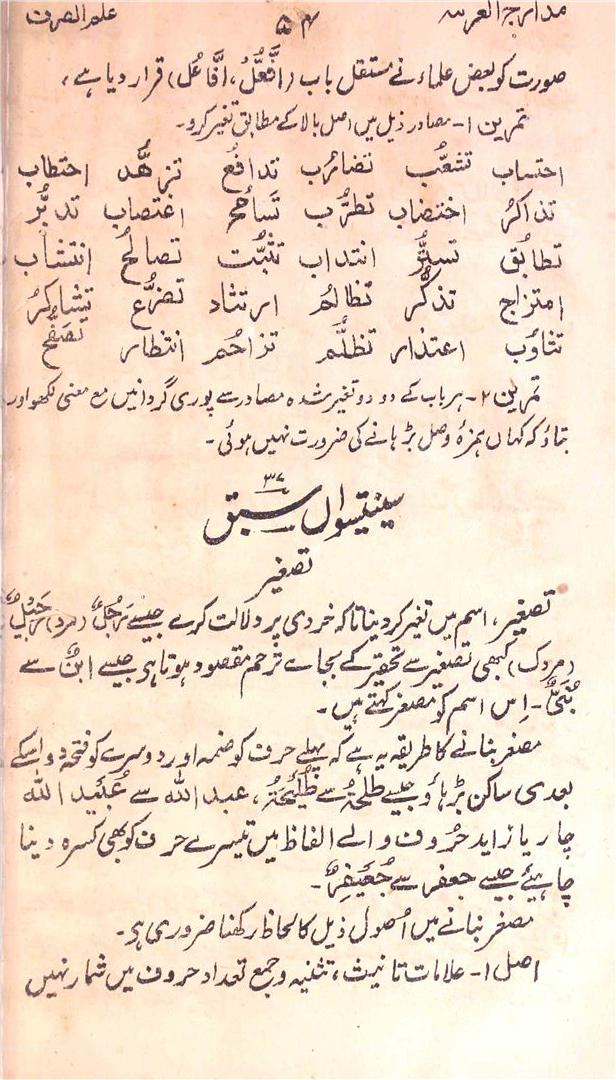 مدارج العربیہ ۵۴ علم الصرف
صورت کو بعض علماء نے مستقل باب (اِفَّعُّلُ، اِفَّاعُل) قرار دیا ہے،
تمرین ۱- مصادر ذیل میں اصل بالا کے مطابق تغیر کرو۔
احتساب تشعُّب تضارُب تدافُع تزھُّد احتطاب
تذاکُر اختضاب تطرُّب تسامُح اعتصاب تدبُّر
تطابُق تستُّر انتداب تثبُّت تصالُح انتشاب
امتزاج تذکُّر تظالُم ارتثاد تضرُّع تشاکُر
تثاوُب اعتذار تظلُّم تزاحُم انتظار تصفُّح
تمرین ۲- ہر باب کے دو دو تغیر شدہ مصادر سے پوری گردانیں مع معنی لکھو اور
بتاؤ کہ کہاں ہمزۂ وصل بڑہانے کی ضرورت نہیں ہوئی۔
۳۷
سینتیسواں سبق
تصغیر
تصغیر، اسم میں تغیر کر دینا تاکہ خردی پر دلالت کرے جیسے رَجُلٌ (مرد) رُجَیْلٌ
(مردک) کبھی تصغیر سے تحقیر کے بجاے ترحم مقصود ہوتا ہی جیسے ابنٌ سے
بُنَیٌّ۔ اِس اسم کو مصغر کہتے ہیں۔
مصغر بنانے کا طریقہ یہ ہے کہ پہلے حرف کو ضمہ اور دوسرے کو فتحہ دو اسکے
بعد ی ساکن بڑہاؤ جیسے طلحۃُ سے طُلَیْحَۃُ، عبد اللہ سے عُبَیْد اللہ
چار یا زاید حُروف والے الفاظ میں تیسرے حرف کو بھی کسرہ دینا
چاہیئے جیسے جعفر سے جُعَیْفِرٌ۔
مصغر بنانے میں اُصول ذیل کا لحاظ رکھنا ضروری ہی۔
اصل ۱- علامات تانیث، تثنیہ و جمع تعداد حروف میں شمار نہیں